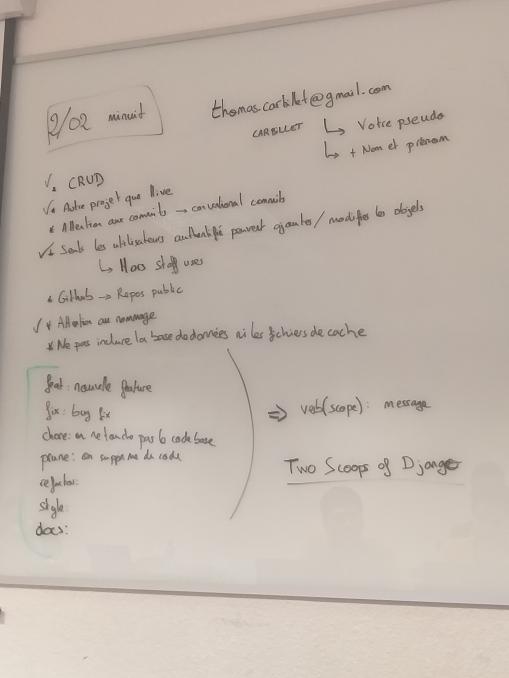 2/02 minuit
thomas.carbillet@gmail.com
CARBILLET ↳ Votre pseudo
↳ + Nom et prénom
✓* CRUD
✓* Autre projet que live
* Attention aux commits → conventional commits
✓* Seuls les utilisateurs authentifié peuvent ajouter/modifier les objets
↳ Hors staff user
* Github → Repos public
✓* Attention au nommage
* Ne pas inclure la base de données ni les fichiers de cache
feat: nouvelle feature
fix: bug fix
chore: on ne touche pas le code base
prune: on supprime du code
refactor:
style:
docs:
⇒ verb(scope): message
Two Scoops of Django